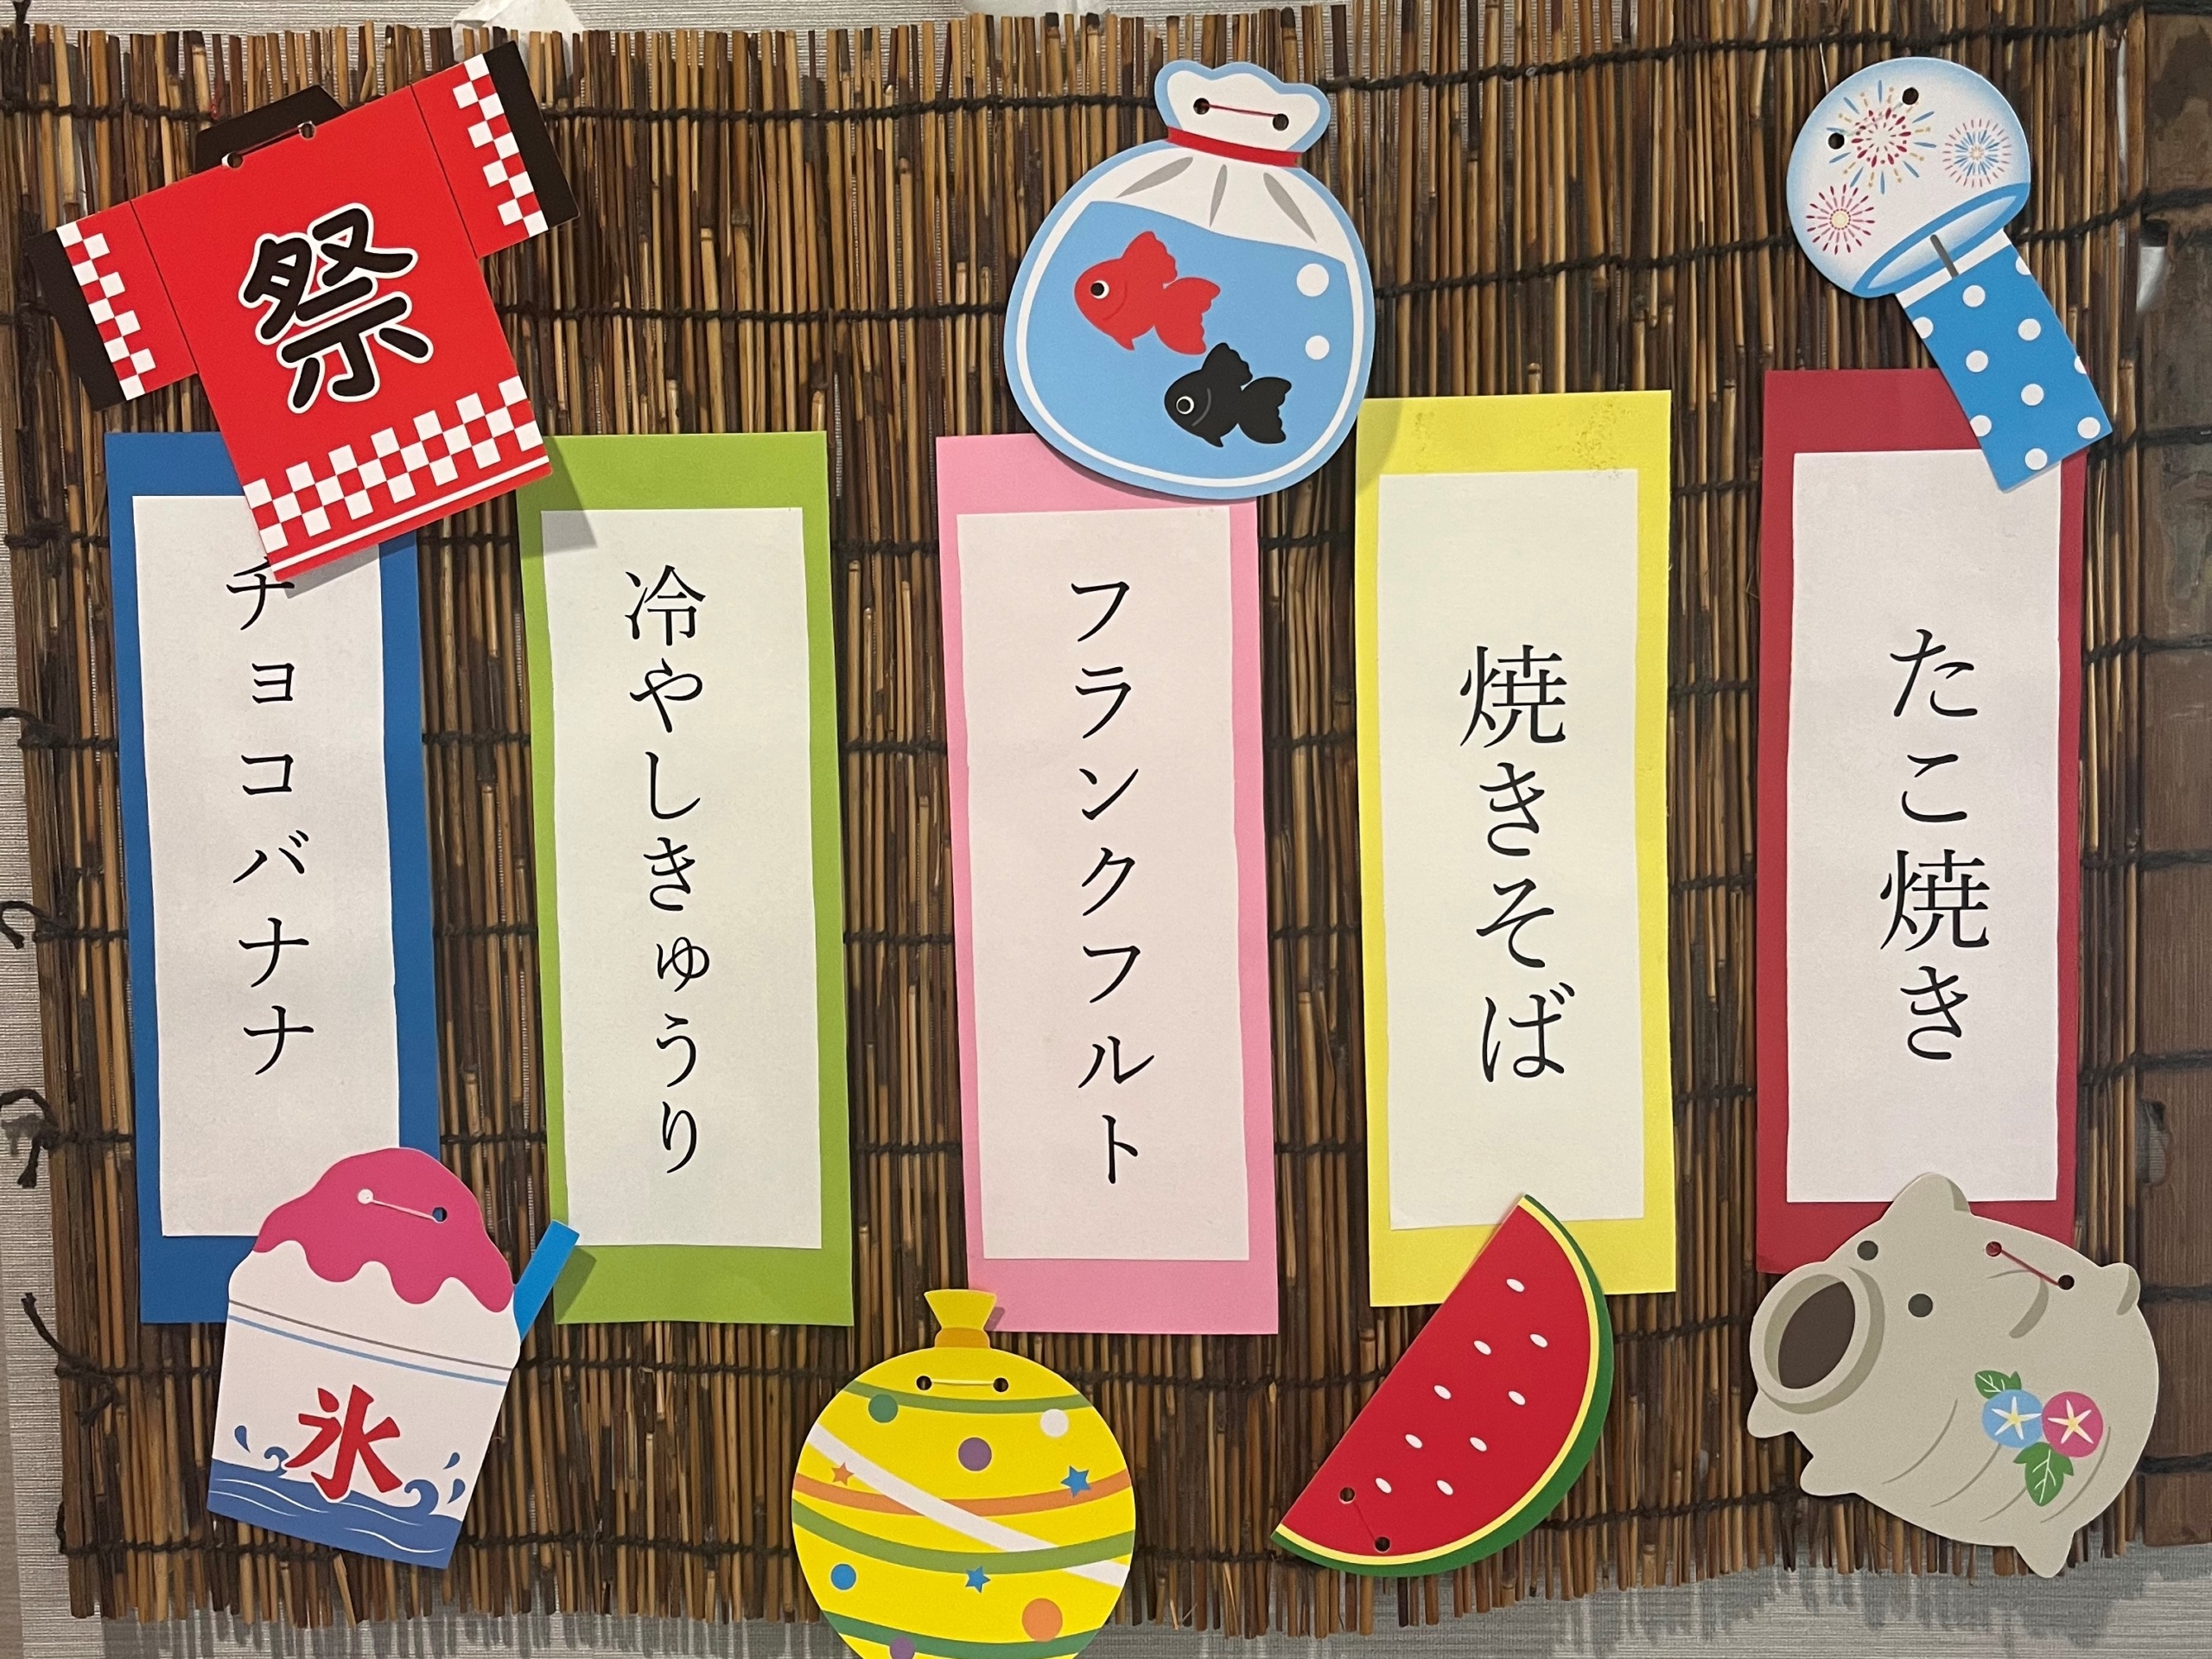 祭
たこ焼き
焼きそば
フランクフルト
冷やしきゅうり
チョコバナナ
氷